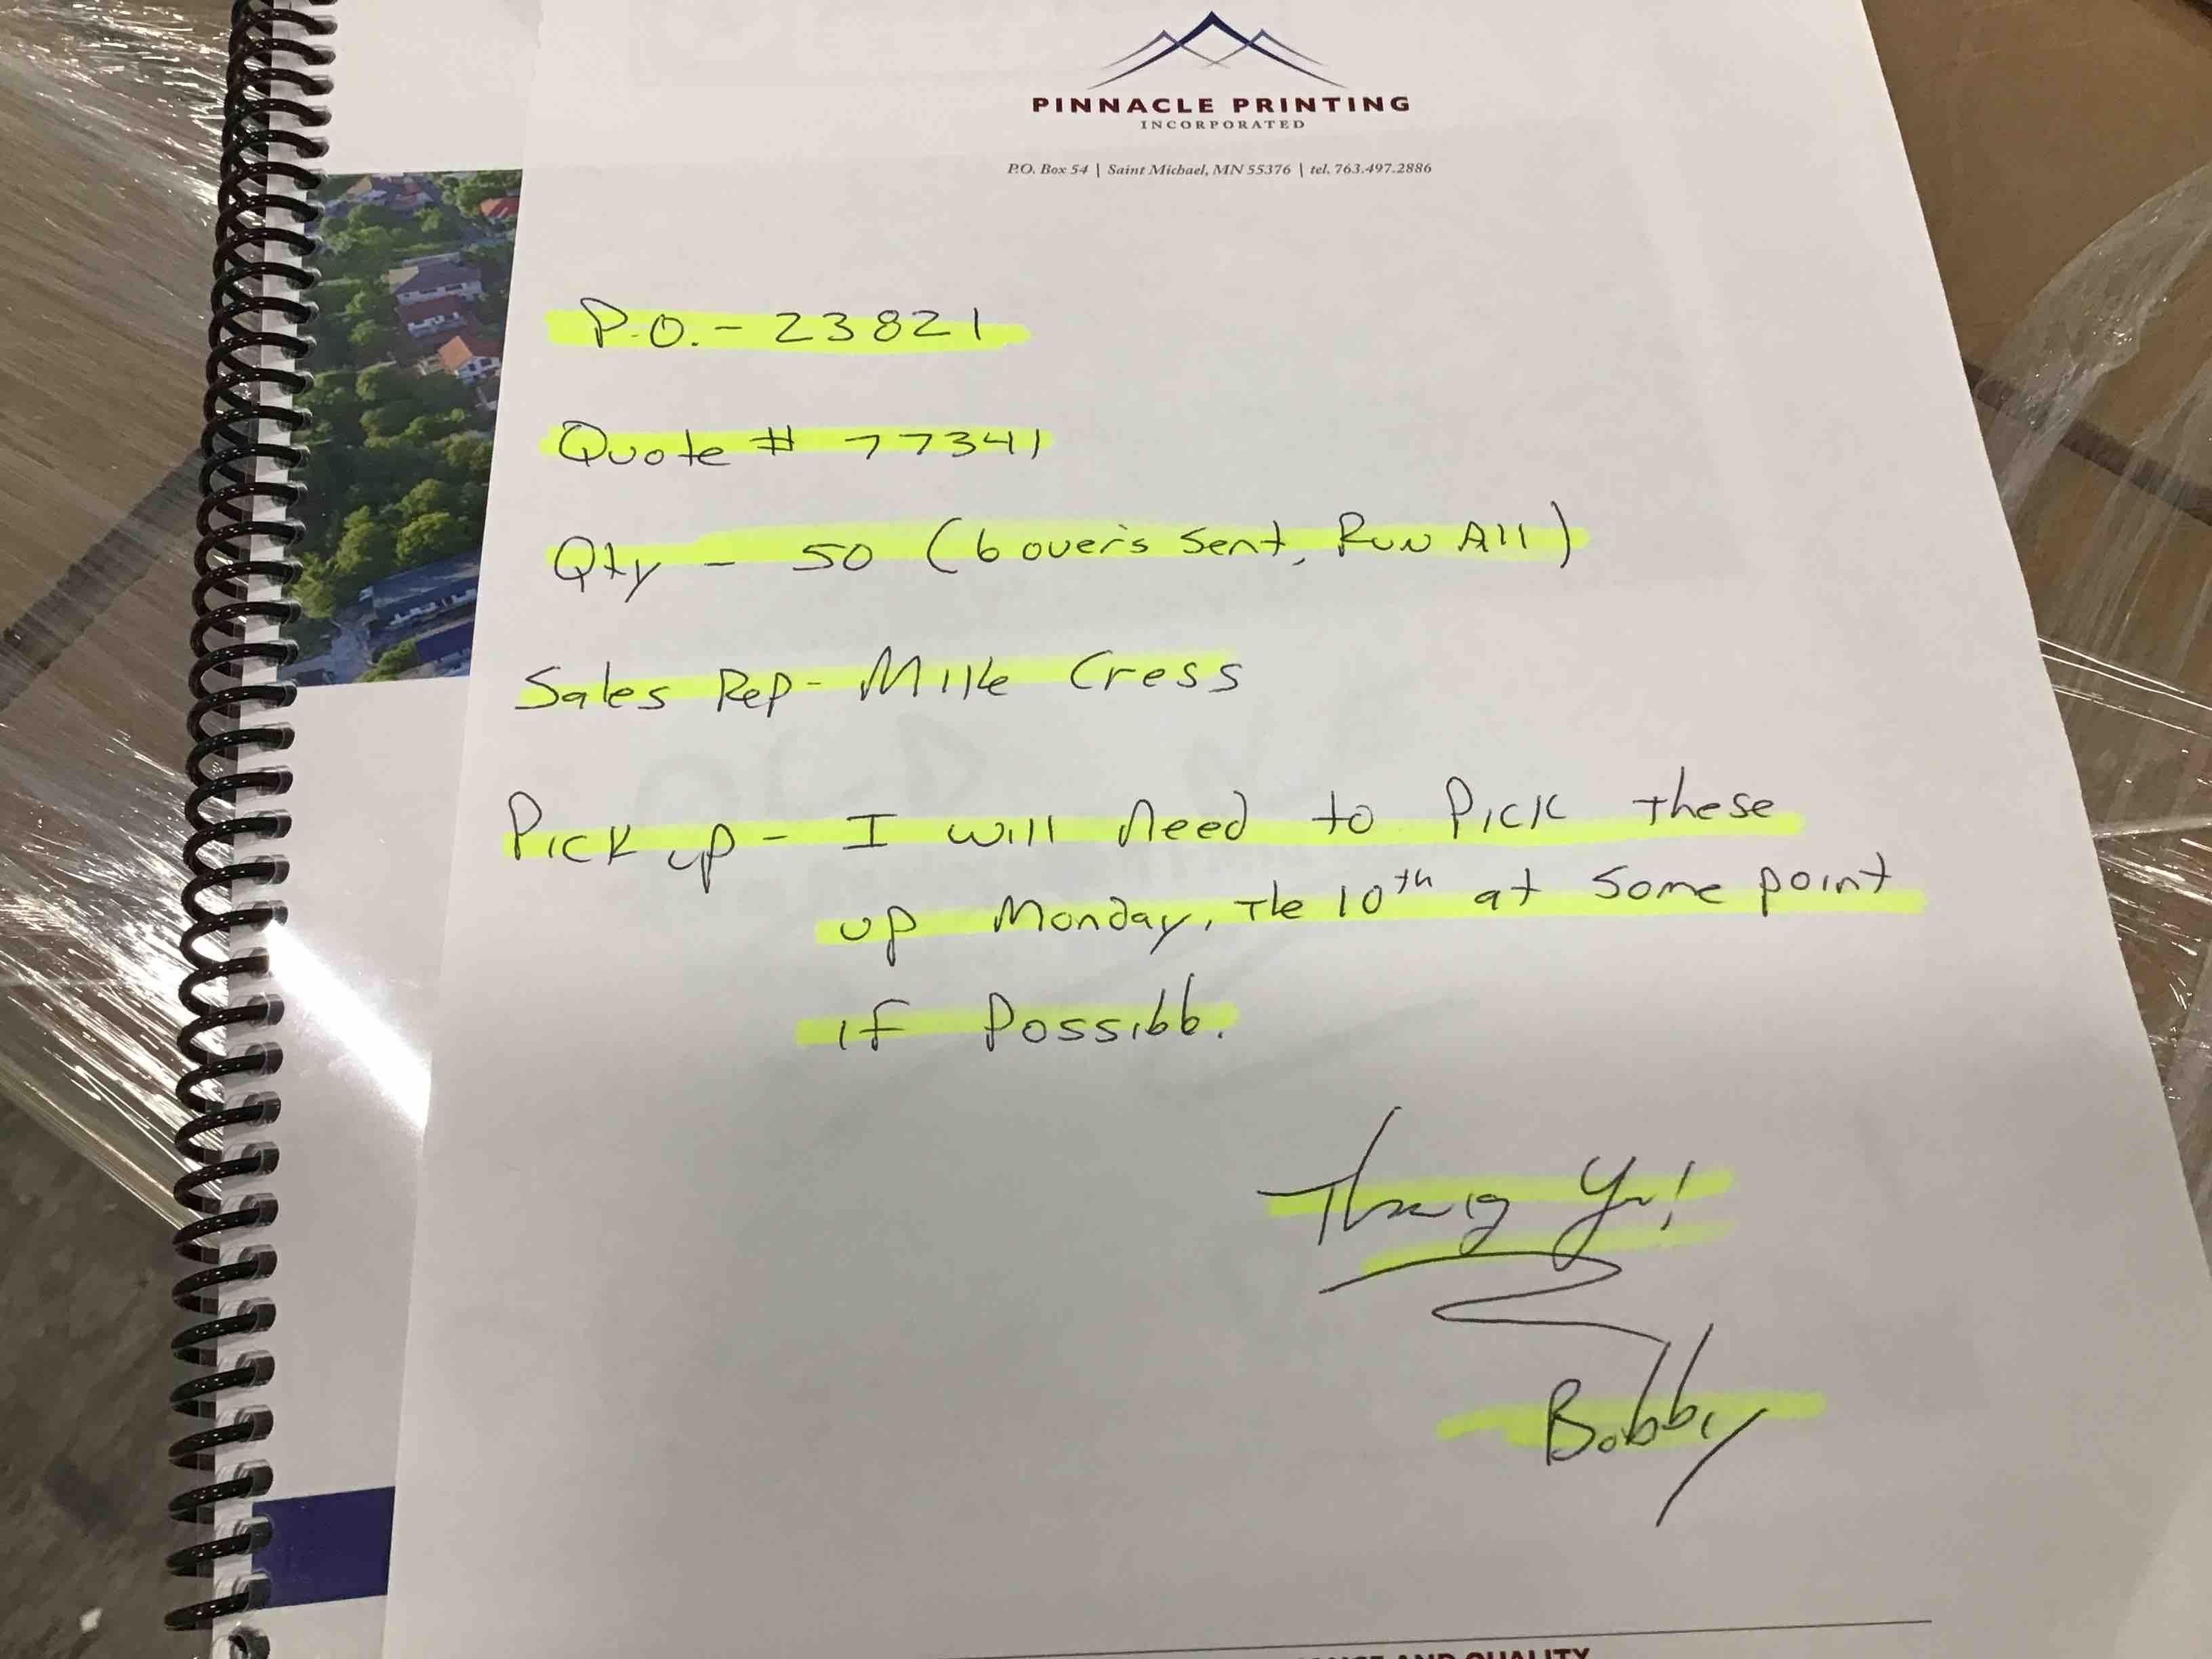 PINNACLE PRINTING
INCORPORATED
P.O. Box 54 | Saint Michael, MN 55376 | tel. 763.497.2886
P.O. - 23821
Quote # 77341
Qty - 50 (6 overs Sent, Run All)
Sales Rep - Mike Cress
Pick up - I will need to Pick these
up Monday, The 10th at Some point
if Possible.
Thank You!
Bobby
AND QUALITY